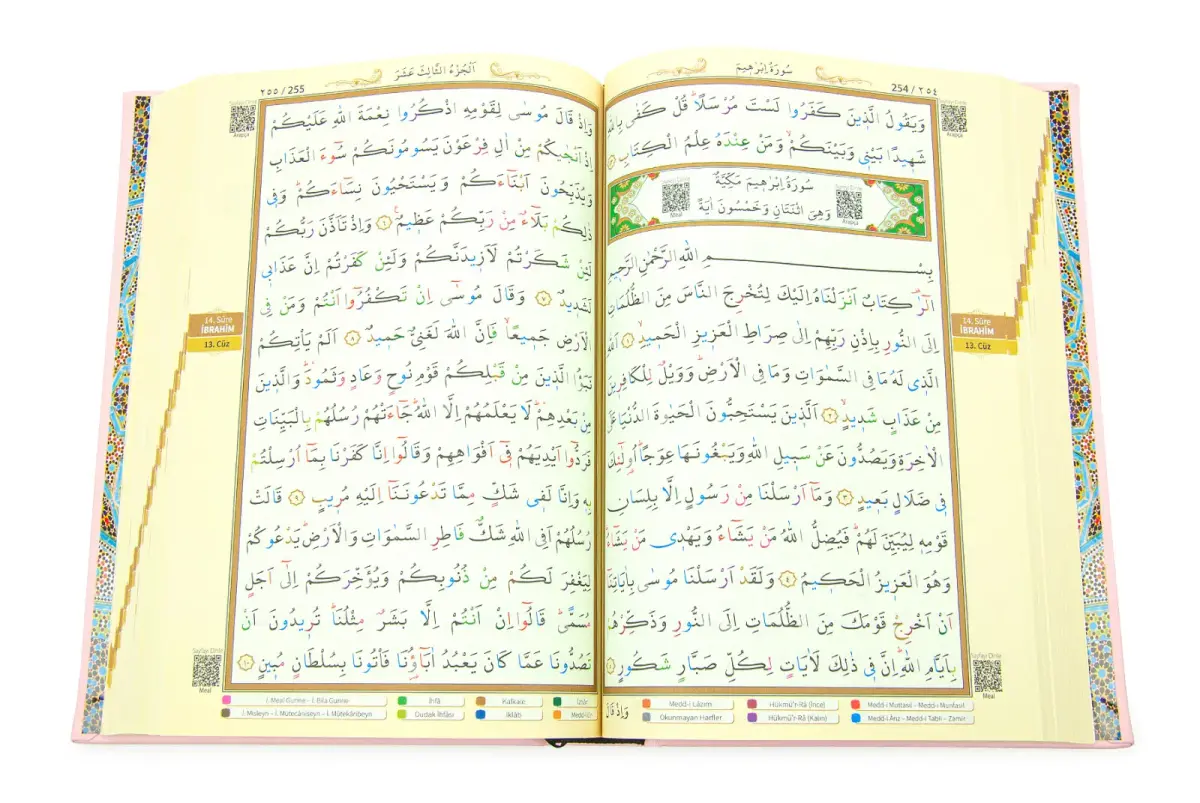 سُورَةُ اِبْرٰه۪يمَ
254 / ٢٥٤
وَيَقُولُ الَّذ۪ينَ كَفَرُوا لَسْتَ مُرْسَلًاۜ قُلْ كَفٰى بِاللّٰهِ
شَه۪يدًا بَيْن۪ي وَبَيْنَكُمْۙ وَمَنْ عِنْدَهُ عِلْمُ الْكِتَابِ
سُورَةُ اِبْرٰه۪يمَ مَكِّيَّةٌ
وَهِيَ اثْنَتَانِ وَخَمْسُونَ اٰيَةً
بِسْمِ اللّٰهِ الرَّحْمٰنِ الرَّح۪يمِ
الٓرٰ۠ كِتَابٌ اَنْزَلْنَاهُ اِلَيْكَ لِتُخْرِجَ النَّاسَ مِنَ الظُّلُمَاتِ
اِلَى النُّورِ بِاِذْنِ رَبِّهِمْ اِلٰى صِرَاطِ الْعَز۪يزِ الْحَم۪يدِۙ ﴿١﴾ اَللّٰهِ
الَّذ۪ي لَهُ مَا فِي السَّمٰوَاتِ وَمَا فِي الْاَرْضِۜ وَوَيْلٌ لِلْكَافِر۪ينَ
مِنْ عَذَابٍ شَد۪يدٍۙ ﴿٢﴾ اَلَّذ۪ينَ يَسْتَحِبُّونَ الْحَيٰوةَ الدُّنْيَا عَلَى
الْاٰخِرَةِ وَيَصُدُّونَ عَنْ سَب۪يلِ اللّٰهِ وَيَبْغُونَهَا عِوَجًاۜ اُو۬لٰٓئِكَ
ف۪ي ضَلَالٍ بَع۪يدٍ ﴿٣﴾ وَمَٓا اَرْسَلْنَا مِنْ رَسُولٍ اِلَّا بِلِسَانِ
قَوْمِه۪ لِيُبَيِّنَ لَهُمْۜ فَيُضِلُّ اللّٰهُ مَنْ يَشَٓاءُ وَيَهْد۪ي مَنْ يَشَٓاءُۜ
وَهُوَ الْعَز۪يزُ الْحَك۪يمُ ﴿٤﴾ وَلَقَدْ اَرْسَلْنَا مُوسٰى بِاٰيَاتِنَٓا
اَنْ اَخْرِجْ قَوْمَكَ مِنَ الظُّلُمَاتِ اِلَى النُّورِ وَذَكِّرْهُمْ
بِاَيَّامِ اللّٰهِۜ اِنَّ ف۪ي ذٰلِكَ لَاٰيَاتٍ لِكُلِّ صَبَّارٍ شَكُورٍ ﴿٥﴾
وَاِذْ قَالَ
14. Sûre
İBRAHİM
13. Cüz
Arapça
Meal
Arapça
Sayfayı Dinle
Meal
Medd-i Lâzım
Hükmü'r-Râ (İnce)
Medd-i Muttasıl - Medd-i Munfasıl
Okunmayan Harfler
Hükmü'r-Râ (Kalın)
Medd-i Ârız - Medd-i Tabii - Zamir
اَلْجُزْءُ الثَّالِثَ عَشَرَ
٢٥٥ / 255
وَاِذْ قَالَ مُوسٰى لِقَوْمِهِ اذْكُرُوا نِعْمَةَ اللّٰهِ عَلَيْكُمْ
اِذْ اَنْجٰيكُمْ مِنْ اٰلِ فِرْعَوْنَ يَسُومُونَكُمْ سُٓوءَ الْعَذَابِ
وَيُذَبِّحُونَ اَبْنَٓاءَكُمْ وَيَسْتَحْيُونَ نِسَٓاءَكُمْۜ وَف۪ي
ذٰلِكُمْ بَلَٓاءٌ مِنْ رَبِّكُمْ عَظ۪يمٌ۟ ﴿٦﴾ وَاِذْ تَاَذَّنَ رَبُّكُمْ
لَئِنْ شَكَرْتُمْ لَاَز۪يدَنَّكُمْ وَلَئِنْ كَفَرْتُمْ اِنَّ عَذَاب۪ي
لَشَد۪يدٌ ﴿٧﴾ وَقَالَ مُوسٰٓى اِنْ تَكْفُرُٓوا اَنْتُمْ وَمَنْ فِي
الْاَرْضِ جَم۪يعًاۙ فَاِنَّ اللّٰهَ لَغَنِيٌّ حَم۪يدٌ ﴿٨﴾ اَلَمْ يَأْتِكُمْ
نَبَؤُا الَّذ۪ينَ مِنْ قَبْلِكُمْ قَوْمِ نُوحٍ وَعَادٍ وَثَمُودَۜ وَالَّذ۪ينَ
مِنْ بَعْدِهِمْۜ لَا يَعْلَمُهُمْ اِلَّا اللّٰهُۜ جَٓاءَتْهُمْ رُسُلُهُمْ بِالْبَيِّنَاتِ
فَرَدُّٓوا اَيْدِيَهُمْ ف۪ٓي اَفْوَاهِهِمْ وَقَالُٓوا اِنَّا كَفَرْنَا بِمَٓا اُرْسِلْتُمْ
بِه۪ وَاِنَّا لَف۪ي شَكٍّ مِمَّا تَدْعُونَنَٓا اِلَيْهِ مُر۪يبٍ ﴿٩﴾ قَالَتْ
رُسُلُهُمْ اَفِي اللّٰهِ شَكٌّ فَاطِرِ السَّمٰوَاتِ وَالْاَرْضِۜ يَدْعُوكُمْ
لِيَغْفِرَ لَكُمْ مِنْ ذُنُوبِكُمْ وَيُؤَخِّرَكُمْ اِلٰٓى اَجَلٍ
مُسَمًّىۜ قَالُٓوا اِنْ اَنْتُمْ اِلَّا بَشَرٌ مِثْلُنَاۜ تُر۪يدُونَ اَنْ
تَصُدُّونَا عَمَّا كَانَ يَعْبُدُ اٰبَٓاؤُ۬نَا فَأْتُونَا بِسُلْطَانٍ مُب۪ينٍ ﴿١٠﴾
14. Sûre
İBRAHİM
13. Cüz
Arapça
Sayfayı Dinle
Meal
İ. Meal Gunne - İ. Bila Gunne
İhfâ
Kalkale
İzhâr
İ. Misleyn - İ. Mütecâniseyn - İ. Mütekâribeyn
Dudak İhfâsı
İklâb